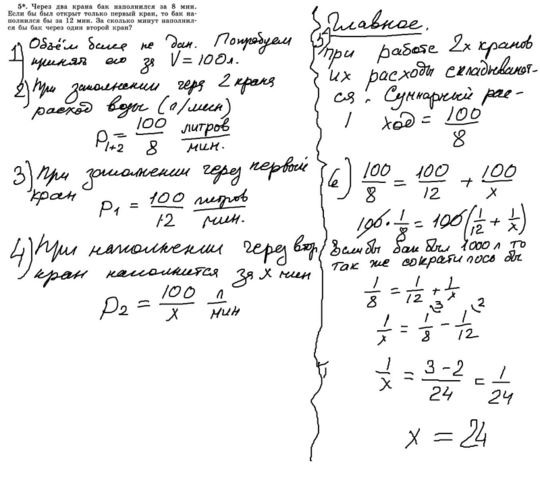 5*. Через два крана бак наполнился за 8 мин.
Если бы был открыт только первый кран, то бак на-
полнился бы за 12 мин. За сколько минут наполнил-
ся бы бак через один второй кран?
1) Объём бака не дан. Попробуем
принять его за V = 100 л.
2) При заполнении через 2 крана
расход воды (л/мин)
P1+2 = 100/8 литров/мин.
3) При заполнении через первый
кран
P1 = 100/12 литров/мин.
4) При наполнении через втор
кран наполнится за x мин
P2 = 100/x л/мин
Главное.
5) При работе 2х кранов
их расходы складывают-
ся. Суммарный рас-
ход = 100/8
6) 100/8 = 100/12 + 100/x
100 · 1/8 = 100 (1/12 + 1/x)
Если бы бак был 1000 л то
так же сократилось бы
1/8 = 1/12 + 1/x
1/x = 1/8 3 - 1/12 2
1/x = 3-2/24 = 1/24
x = 24